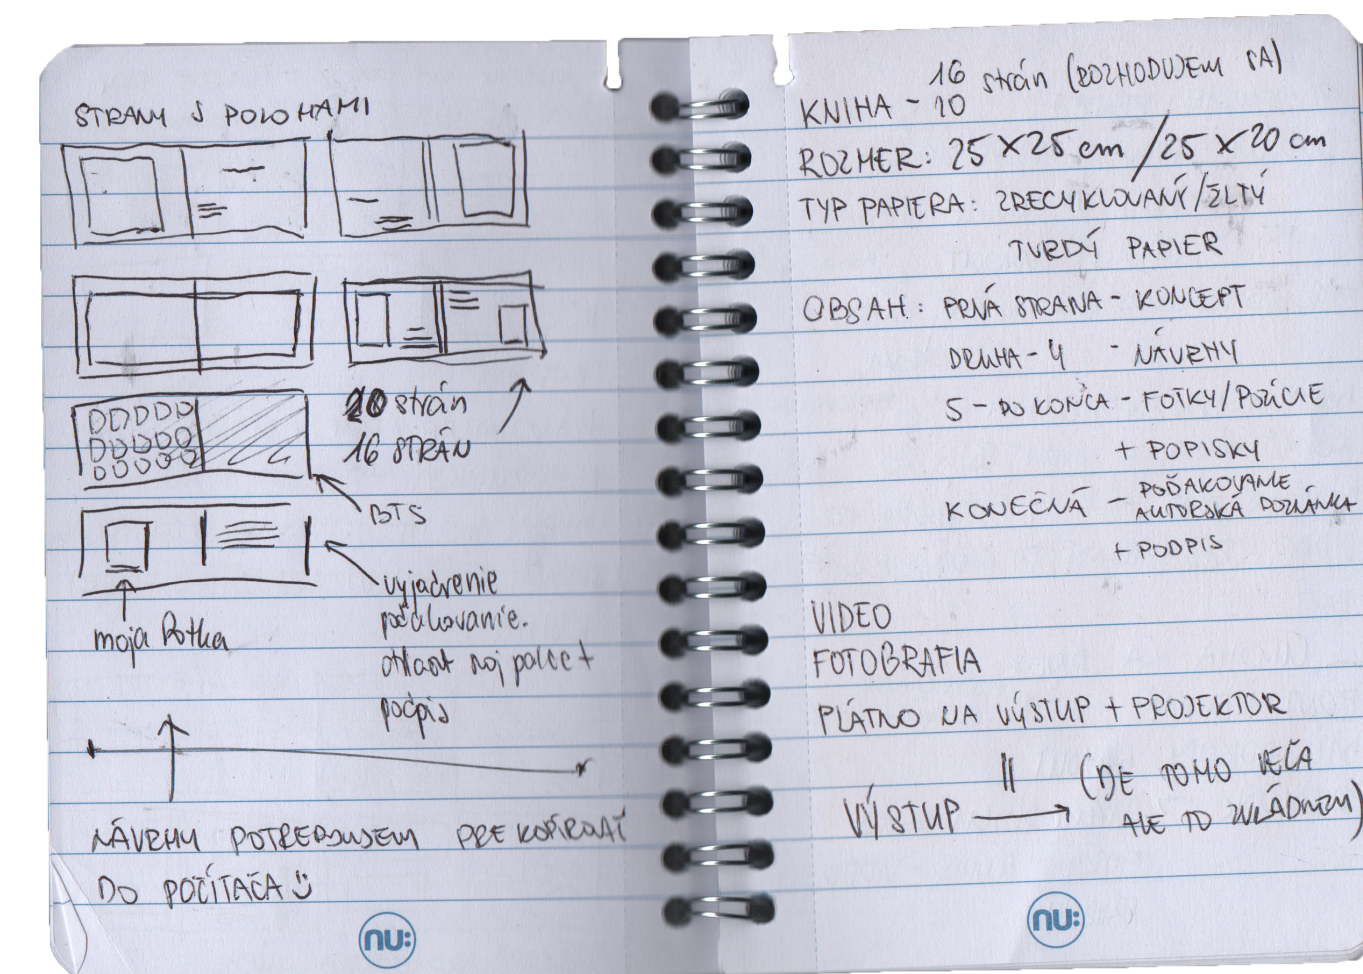 STRANY S POLOHAMI
20 strán
16 STRÁN
BTS
moja fotka
vyjadrenie
poďakovanie.
odkaz na palce +
podpis
NÁVRHY POTREBUJEM PREKOPÍROVAŤ
DO POČÍTAČA
nu:
16 strán (ROZHODUJEM SA)
KNIHA - 20
ROZMER: 25 X 25 cm / 25 X 20 cm
TYP PAPIERA: ZRECYKLOVANÝ/ŽLTÝ
TVRDÝ PAPIER
OBSAH: PRVÁ STRANA - KONCEPT
DRUHA - 4 - NÁVRHY
5 - DO KONCA - FOTKY/POZÍCIE
+ POPISKY
KONEČNÁ - POĎAKOVANIE
AUTORSKÁ POZNÁMKA
+ PODPIS
VIDEO
FOTOGRAFIA
PLÁTNO NA VÝSTUP + PROJEKTOR
VÝSTUP → (JE TOHO VEĽA
ALE TO ZVLÁDNEM)
nu: